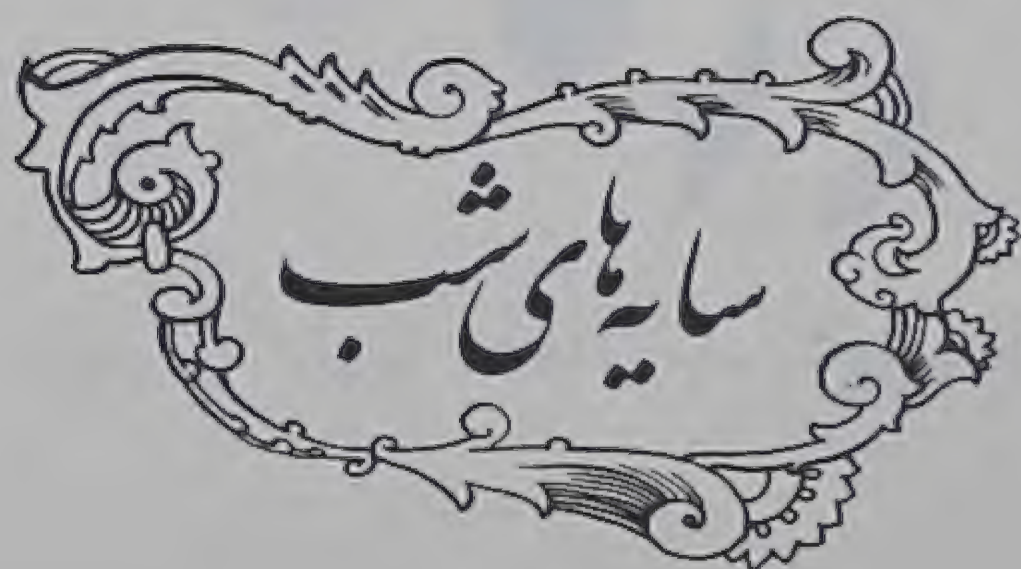 سایه‌های شب